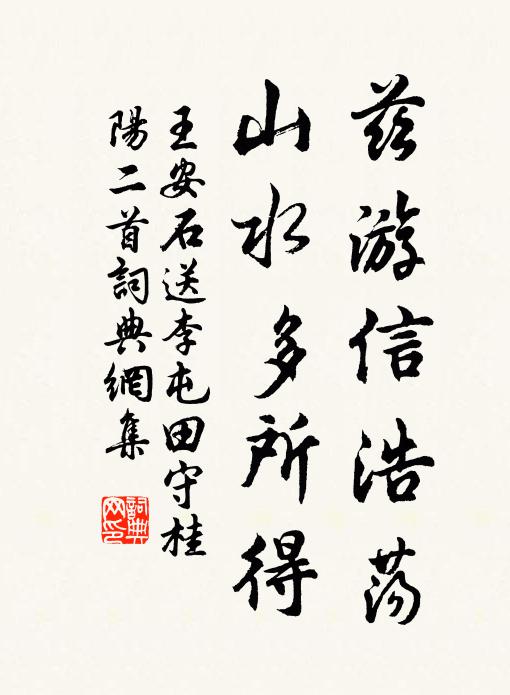 茲游信浩蕩
山水多所得
王安石送李屯田守桂
陽二首詞典網集
詞典
网印